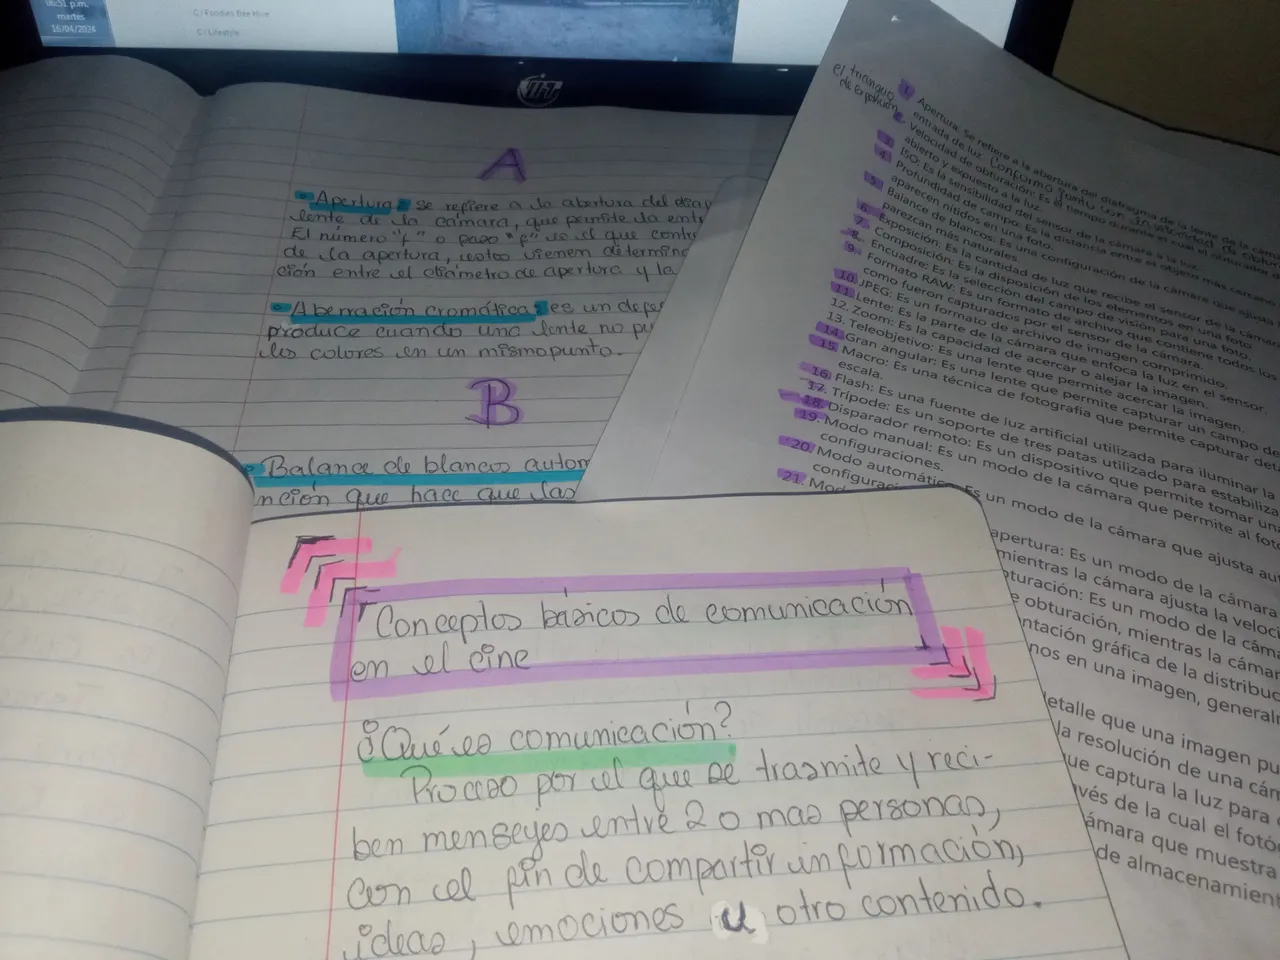 06:51 p.m.
martes
16/04/2024
C/Foodies Bee Hive
C/Lifestyle
A
• Apertura: se refiere a la abertura del
lente de la cámara, que permite la
El número "f" o paso "f" es el que
de la apertura, estos vienen
ción entre el diámetro de apertura y la
• Aberración cromática: es un
produce cuando una lente no
los colores en un mismo punto.
B
• Balance de blancos
nción que hace que las
Conceptos básicos de comunicación
en el cine
¿Qué es comunicación?
Proceso por el que se trasmite y reci-
ben menseyes entre 2 o mas personas,
con el fin de compartir información,
ideas, emociones u otro contenido.
el triangulo
de exposición
1. Apertura: Se refiere a la abertura del diafragma de la lente de la
entrada de luz. Conforma junto con
2. Velocidad de obturación: Es el tiempo durante el cual el obturador
abierto y expuesto a la luz.
3. ISO: Es la sensibilidad del sensor de la cámara a la luz.
4. Profundidad de campo: Es la distancia entre el objeto más cercano
aparecen nítidos en una foto.
5. Balance de blancos: Es una configuración de la cámara que ajusta
parezcan más naturales.
6. Exposición: Es la cantidad de luz que recibe el sensor de la
7. Composición: Es la disposición de los elementos en una foto.
8. Encuadre: Es la selección del campo de visión para una foto.
9. Formato RAW: Es un formato de archivo que contiene todos los
como fueron capturados por el sensor de la cámara.
10. JPEG: Es un formato de archivo de imagen comprimido.
11. Lente: Es la parte de la cámara que enfoca la luz en el sensor.
12. Zoom: Es la capacidad de acercar o alejar la imagen.
13. Teleobjetivo: Es una lente que permite acercar la imagen.
14. Gran angular: Es una lente que permite capturar un campo de
15. Macro: Es una técnica de fotografía que permite capturar
escala.
16. Flash: Es una fuente de luz artificial utilizada para iluminar la
17. Trípode: Es un soporte de tres patas utilizado para
18. Disparador remoto: Es un dispositivo que permite tomar
19. Modo manual: Es un modo de la cámara que permite al
configuraciones.
20. Modo automático: Es un modo de la cámara que ajusta
21.
apertura: Es un modo de la cámara
mientras la cámara ajusta la
Es un modo de la
obturación, mientras la
gráfica de la
en una imagen,
detalle que una imagen
la resolución de una
que captura la luz para
través de la cual el
cámara que muestra
de